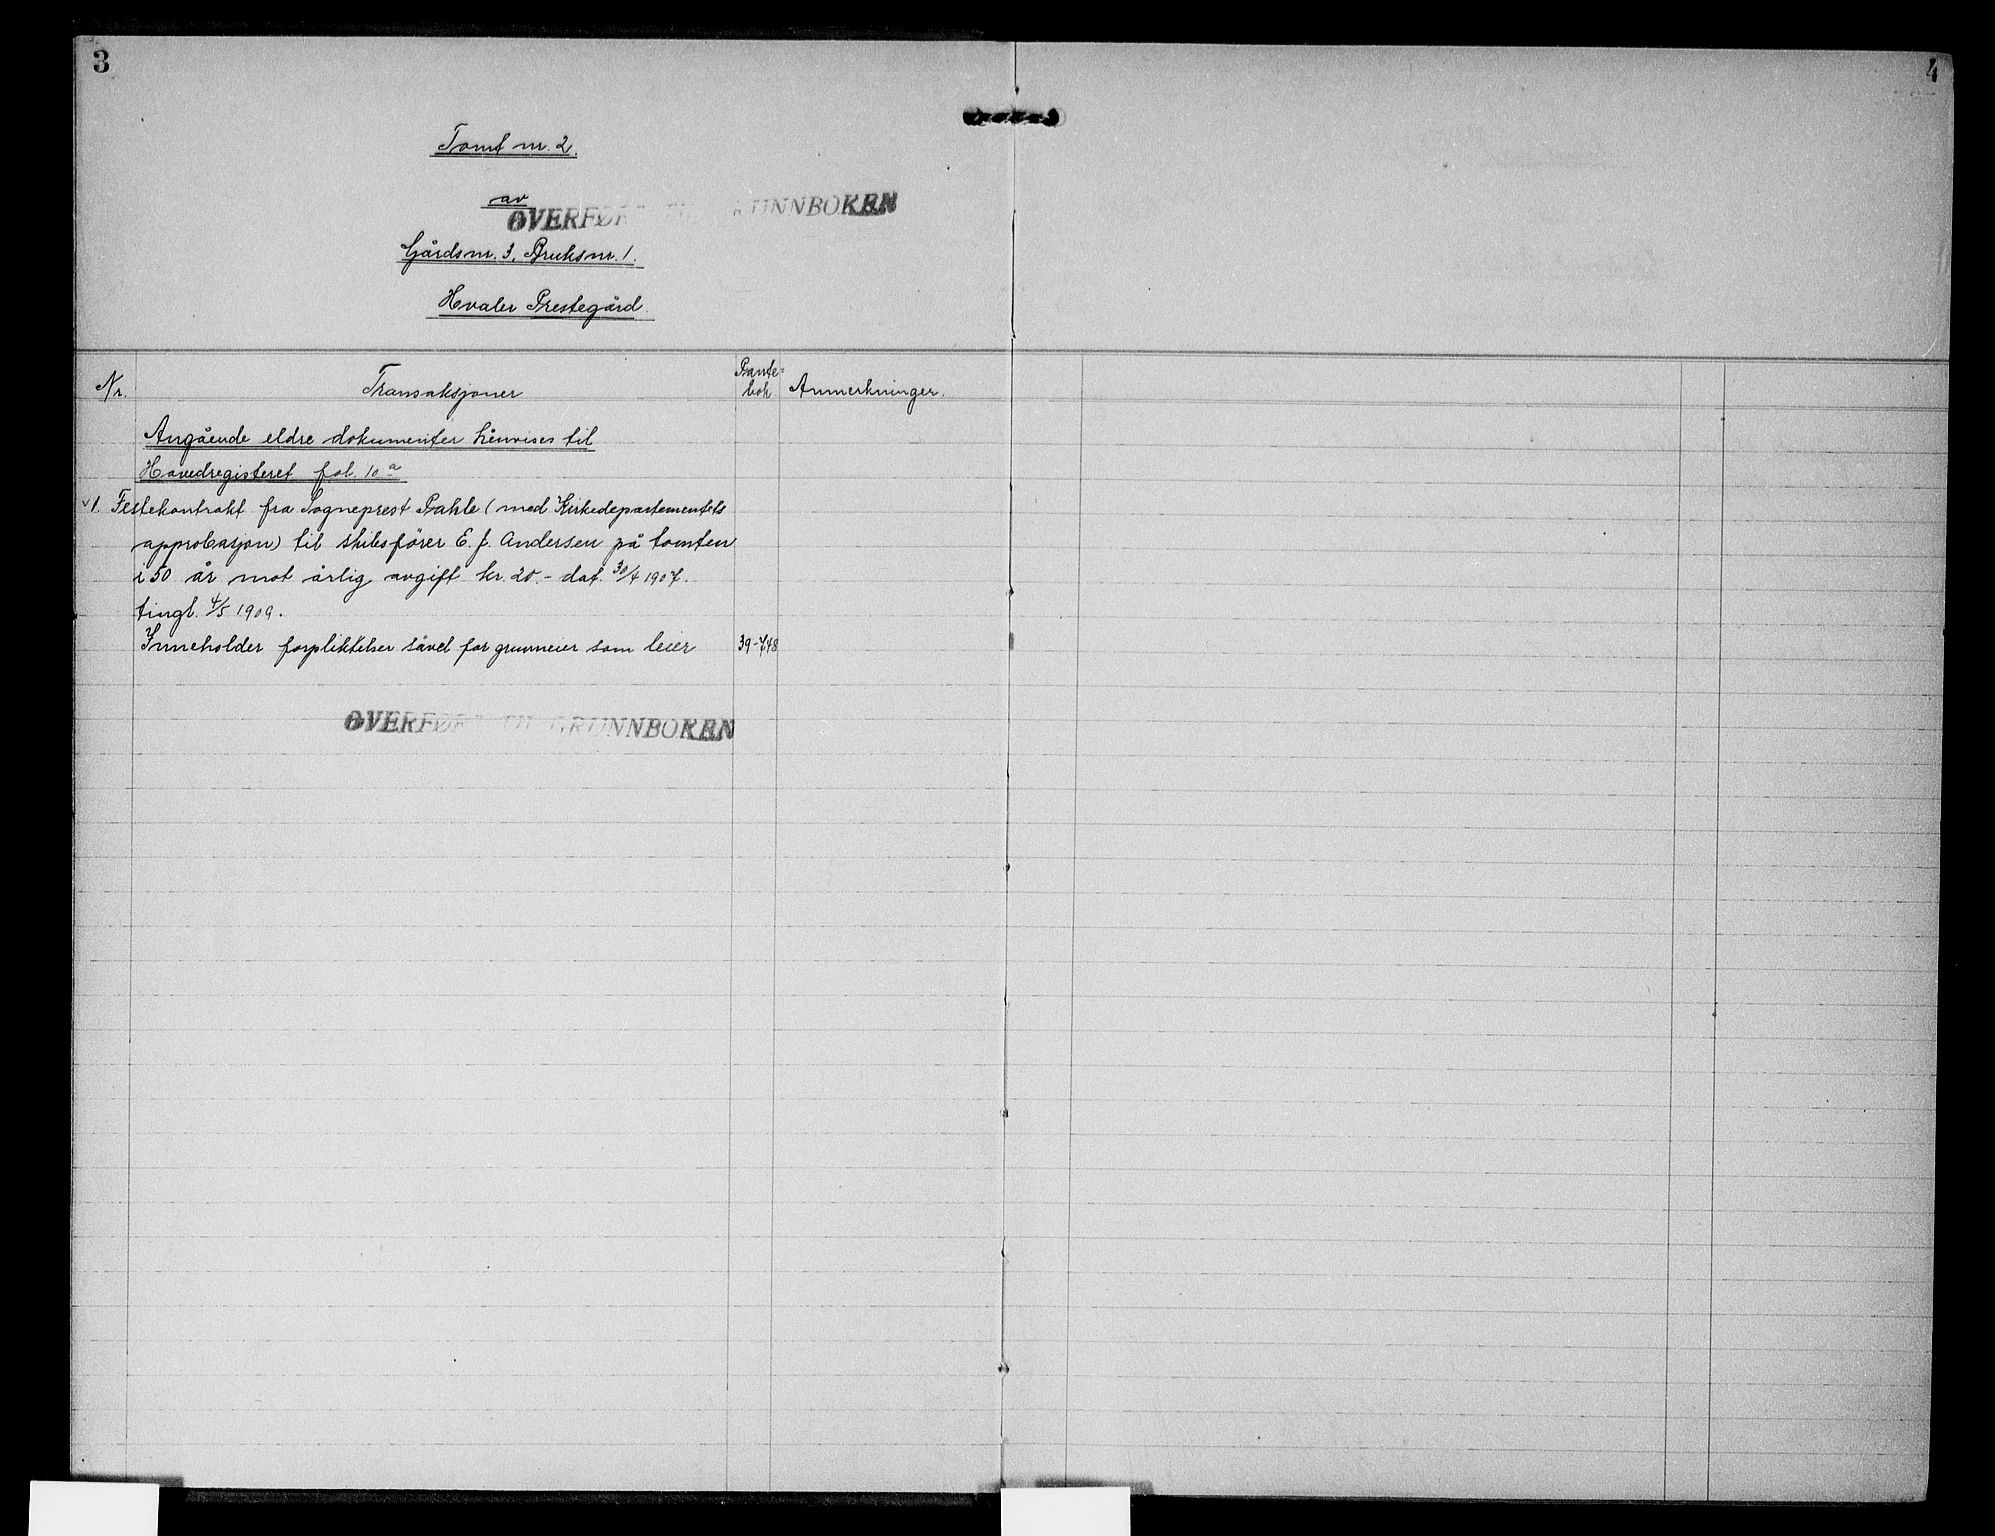 3
4
Tomt nr. 2.
av
OVERFØRT TIL GRUNNBOKEN
Gårdsnr. 3, Bruksnr. 1.
Hvaler Prestegård.
Nr. Transaksjoner Pante= bok Anmerkninger.
Angående eldre dokumenter henvises til
Hovedregisteret fol. 10 a
√1. Festekontrakt fra Sogneprest Bakle (med Kirkedepartementets
approbasjon) til skibsfører E. J. Andersen på tomten
i 50 år mot årlig avgift kr. 20.- dat. 30/4 1907.
tingl. 4/5 1909.
Inneholder forpliktelser såvel for grunneier som leier 39-748
OVERFØRT TIL GRUNNBOKEN